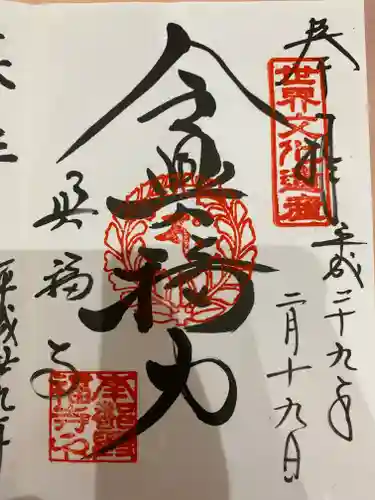 奉拝
世界文化遺産
平成二十九年
二月十九日
令興福力
興福寺
平成廿九年